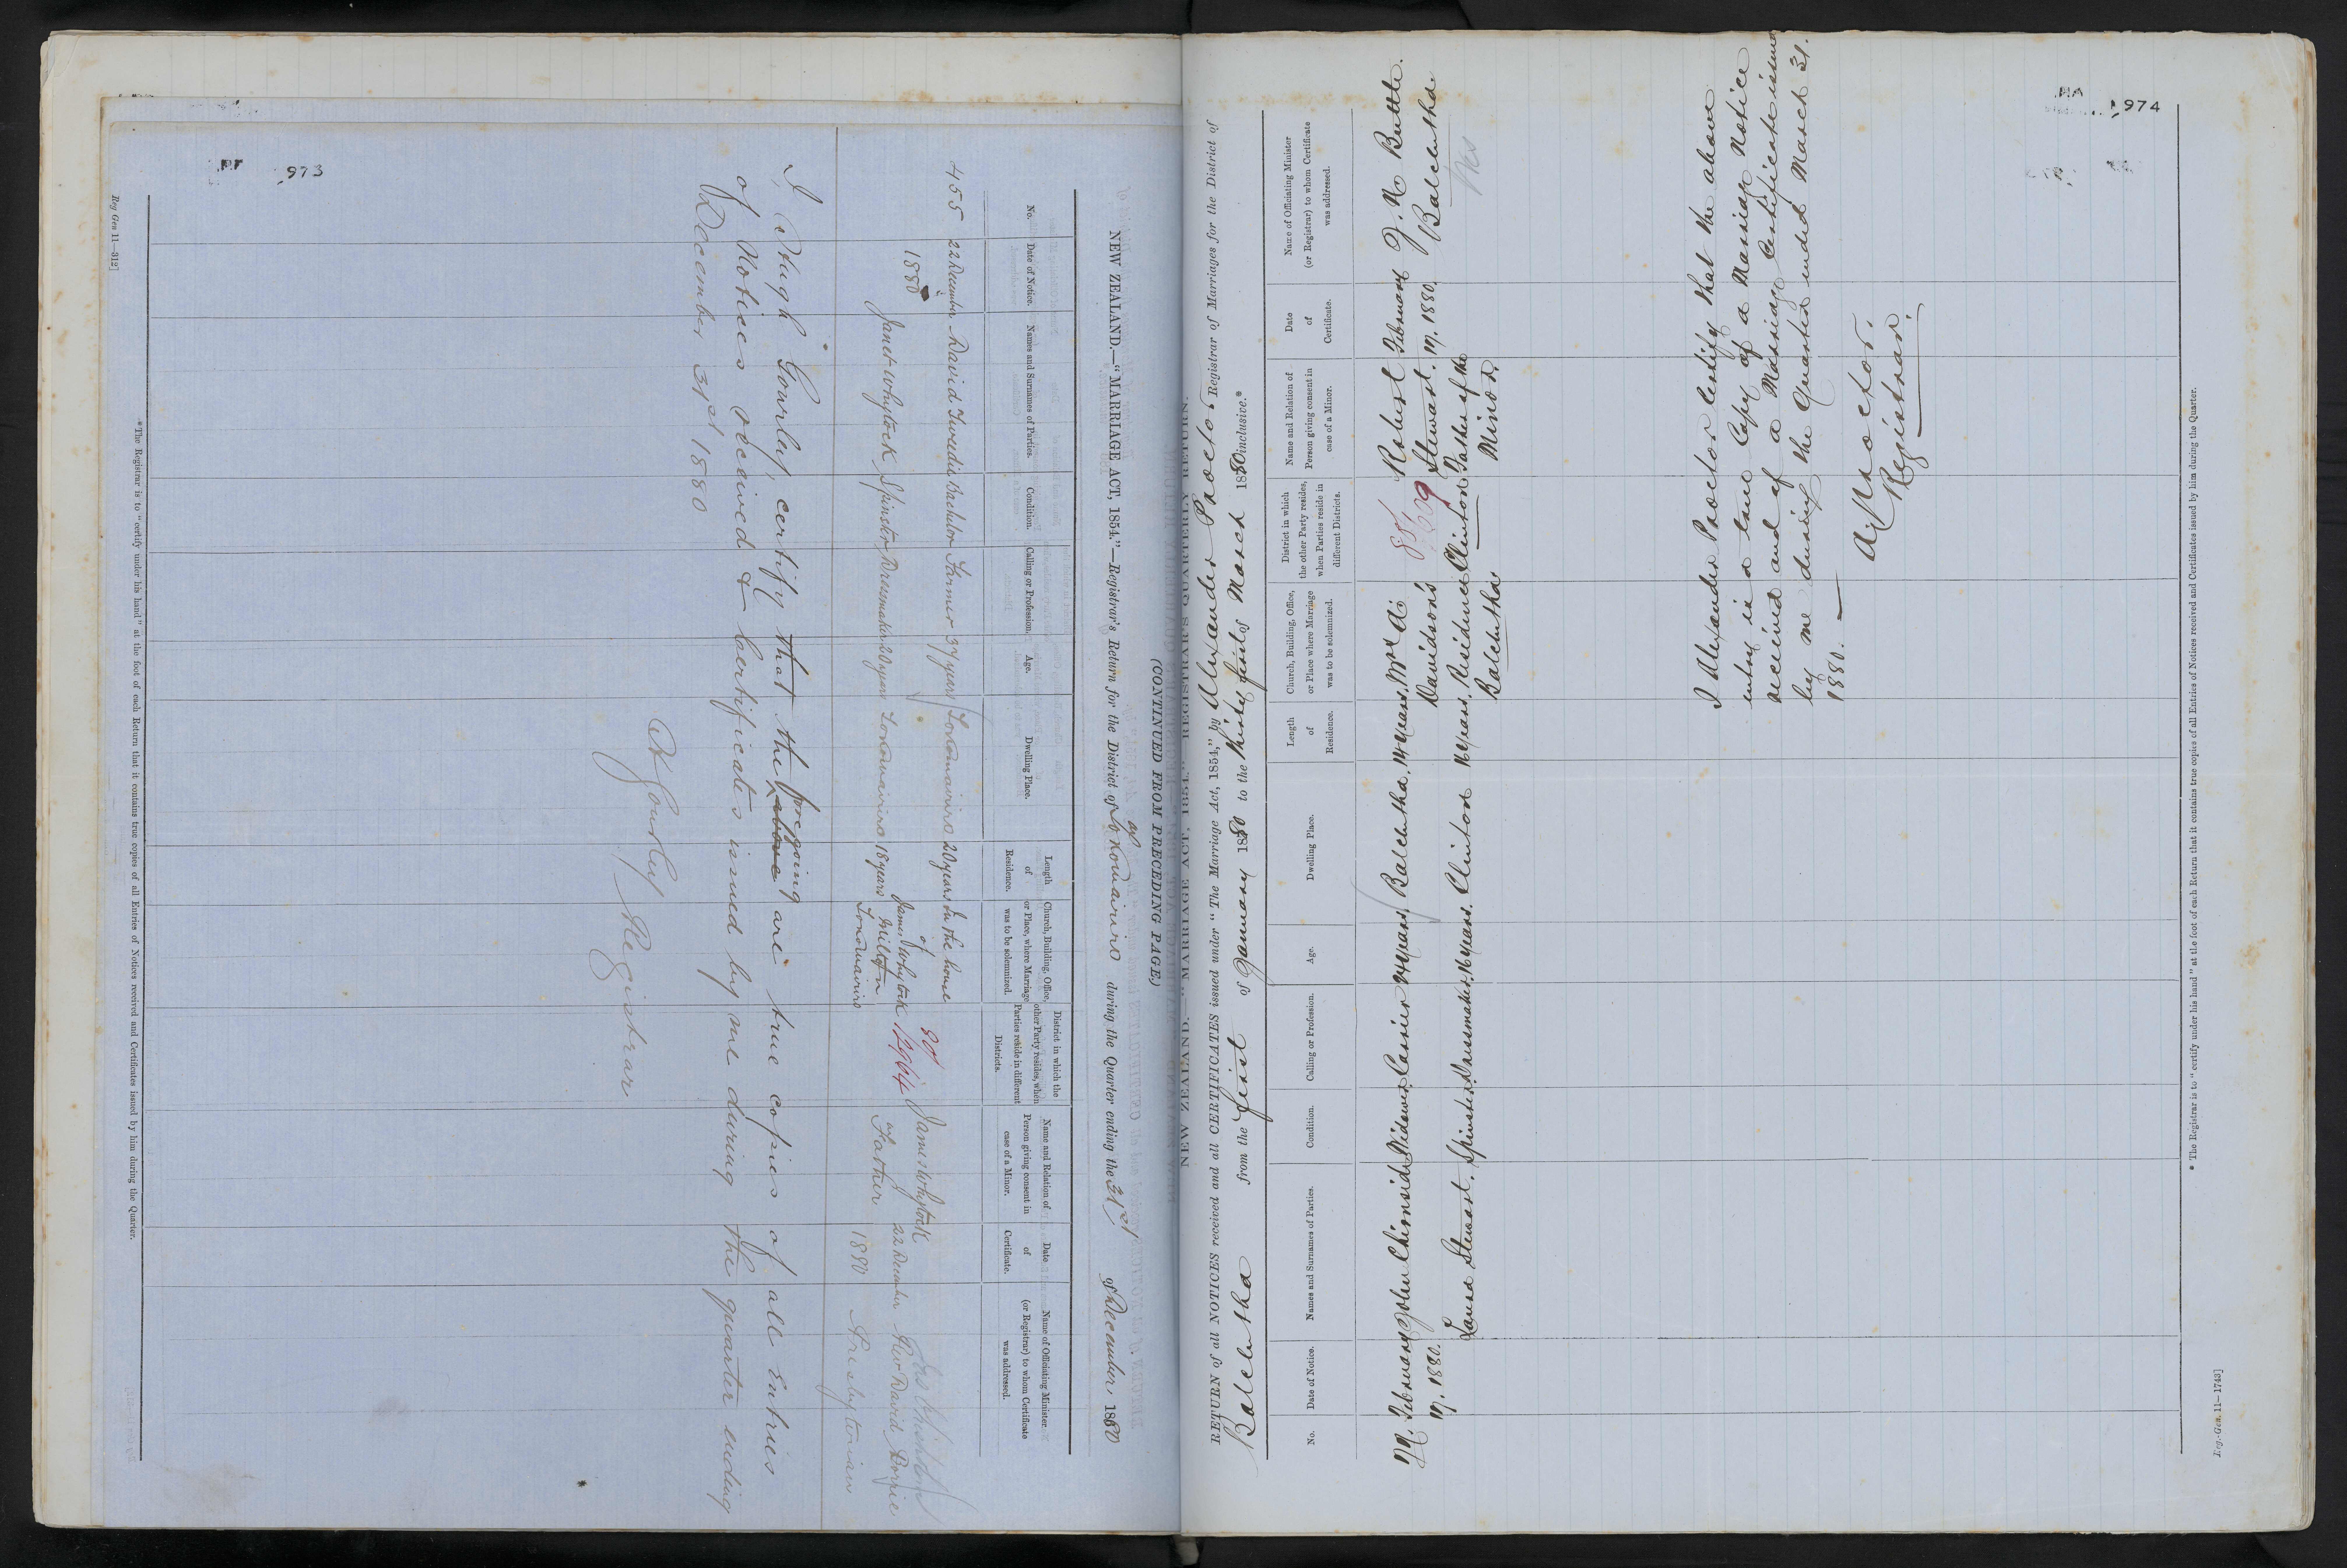 973
(CONTINUED FROM PRECEDING PAGE.)
NEW ZEALAND.—"MARRIAGE ACT, 1854."—Registrar's Return for the District of Tokomairiro during the Quarter ending the 31st of December, 1880
No.
Date of Notice.
Names and Surnames of Parties.
Condition.
Calling or Profession.
Age.
Dwelling Place.
Length of Residence.
Church, Building, Office, or Place, where Marriage was to be solemnized.
District in which the other Party resides, when Parties reside in different Districts.
Name and Relation of Person giving consent in case of a Minor.
Date of Certificate.
Name of Officiating Minister (or Registrar) to whom Certificate was addressed.
455 22 December 1880
David Tweedie Bachelor Farmer 37 years Tokomairiro 20 years In the house of James Whytock Milton Tokomairiro
Janet Whytock Spinster Dressmaker 20 years Tokomairiro 18 years
80/1964
James Whytock Father
22 December 1880
Rev David Borrie
Presbyterian
I, Hugh Gourlay, certify that the above foregoing are true copies of all entries
of Notices received & Certificates issued by me during the quarter ending
December 31st 1880
H Gourlay Registrar
* The Registrar is to "certify under his hand" at the foot of each Return that it contains true copies of all Entries of Notices received and Certificates issued by him during the Quarter.
Reg Gen 11—312]
974
NEW ZEALAND.—"MARRIAGE ACT, 1854."—REGISTRAR'S QUARTERLY RETURN.
RETURN of all NOTICES received and all CERTIFICATES issued under "The Marriage Act, 1854," by Alexander Proctor Registrar of Marriages for the District of
Balclutha from the first of January 1880 to the thirty first of March 1880 inclusive.*
No.
Date of Notice.
Names and Surnames of Parties.
Condition.
Calling or Profession.
Age.
Dwelling Place.
Length of Residence.
Church, Building, Office, or Place where Marriage was to be solemnized.
District in which the other Party resides, when Parties reside in different Districts.
Name and Relation of Person giving consent in case of a Minor.
Date of Certificate.
Name of Officiating Minister (or Registrar) to whom Certificate was addressed.
February 17. 1880.
John Chirnside Widower Carrier 24 years Balclutha. 14 years. Mrs A. Davidson's Residence Balclutha
Laura Stewart. Spinster. Dressmaker. 16 years. Clinton 16 years.
80/209
Clinton
Robert Stewart. Father of the Minor.
February 17. 1880.
J. N. Buttle.
Balclutha
Wes
I Alexander Proctor certify that the above
entry is a true Copy of a Marriage Notice
received and of a Marriage Certificate issued
by me during the Quarter ended March 31.
1880.
A. Proctor.
Registrar.
* The Registrar is to "certify under his hand" at the foot of each Return that it contains true copies of all Entries of Notices received and Certificates issued by him during the Quarter.
Reg.-Gen. 11—1743]